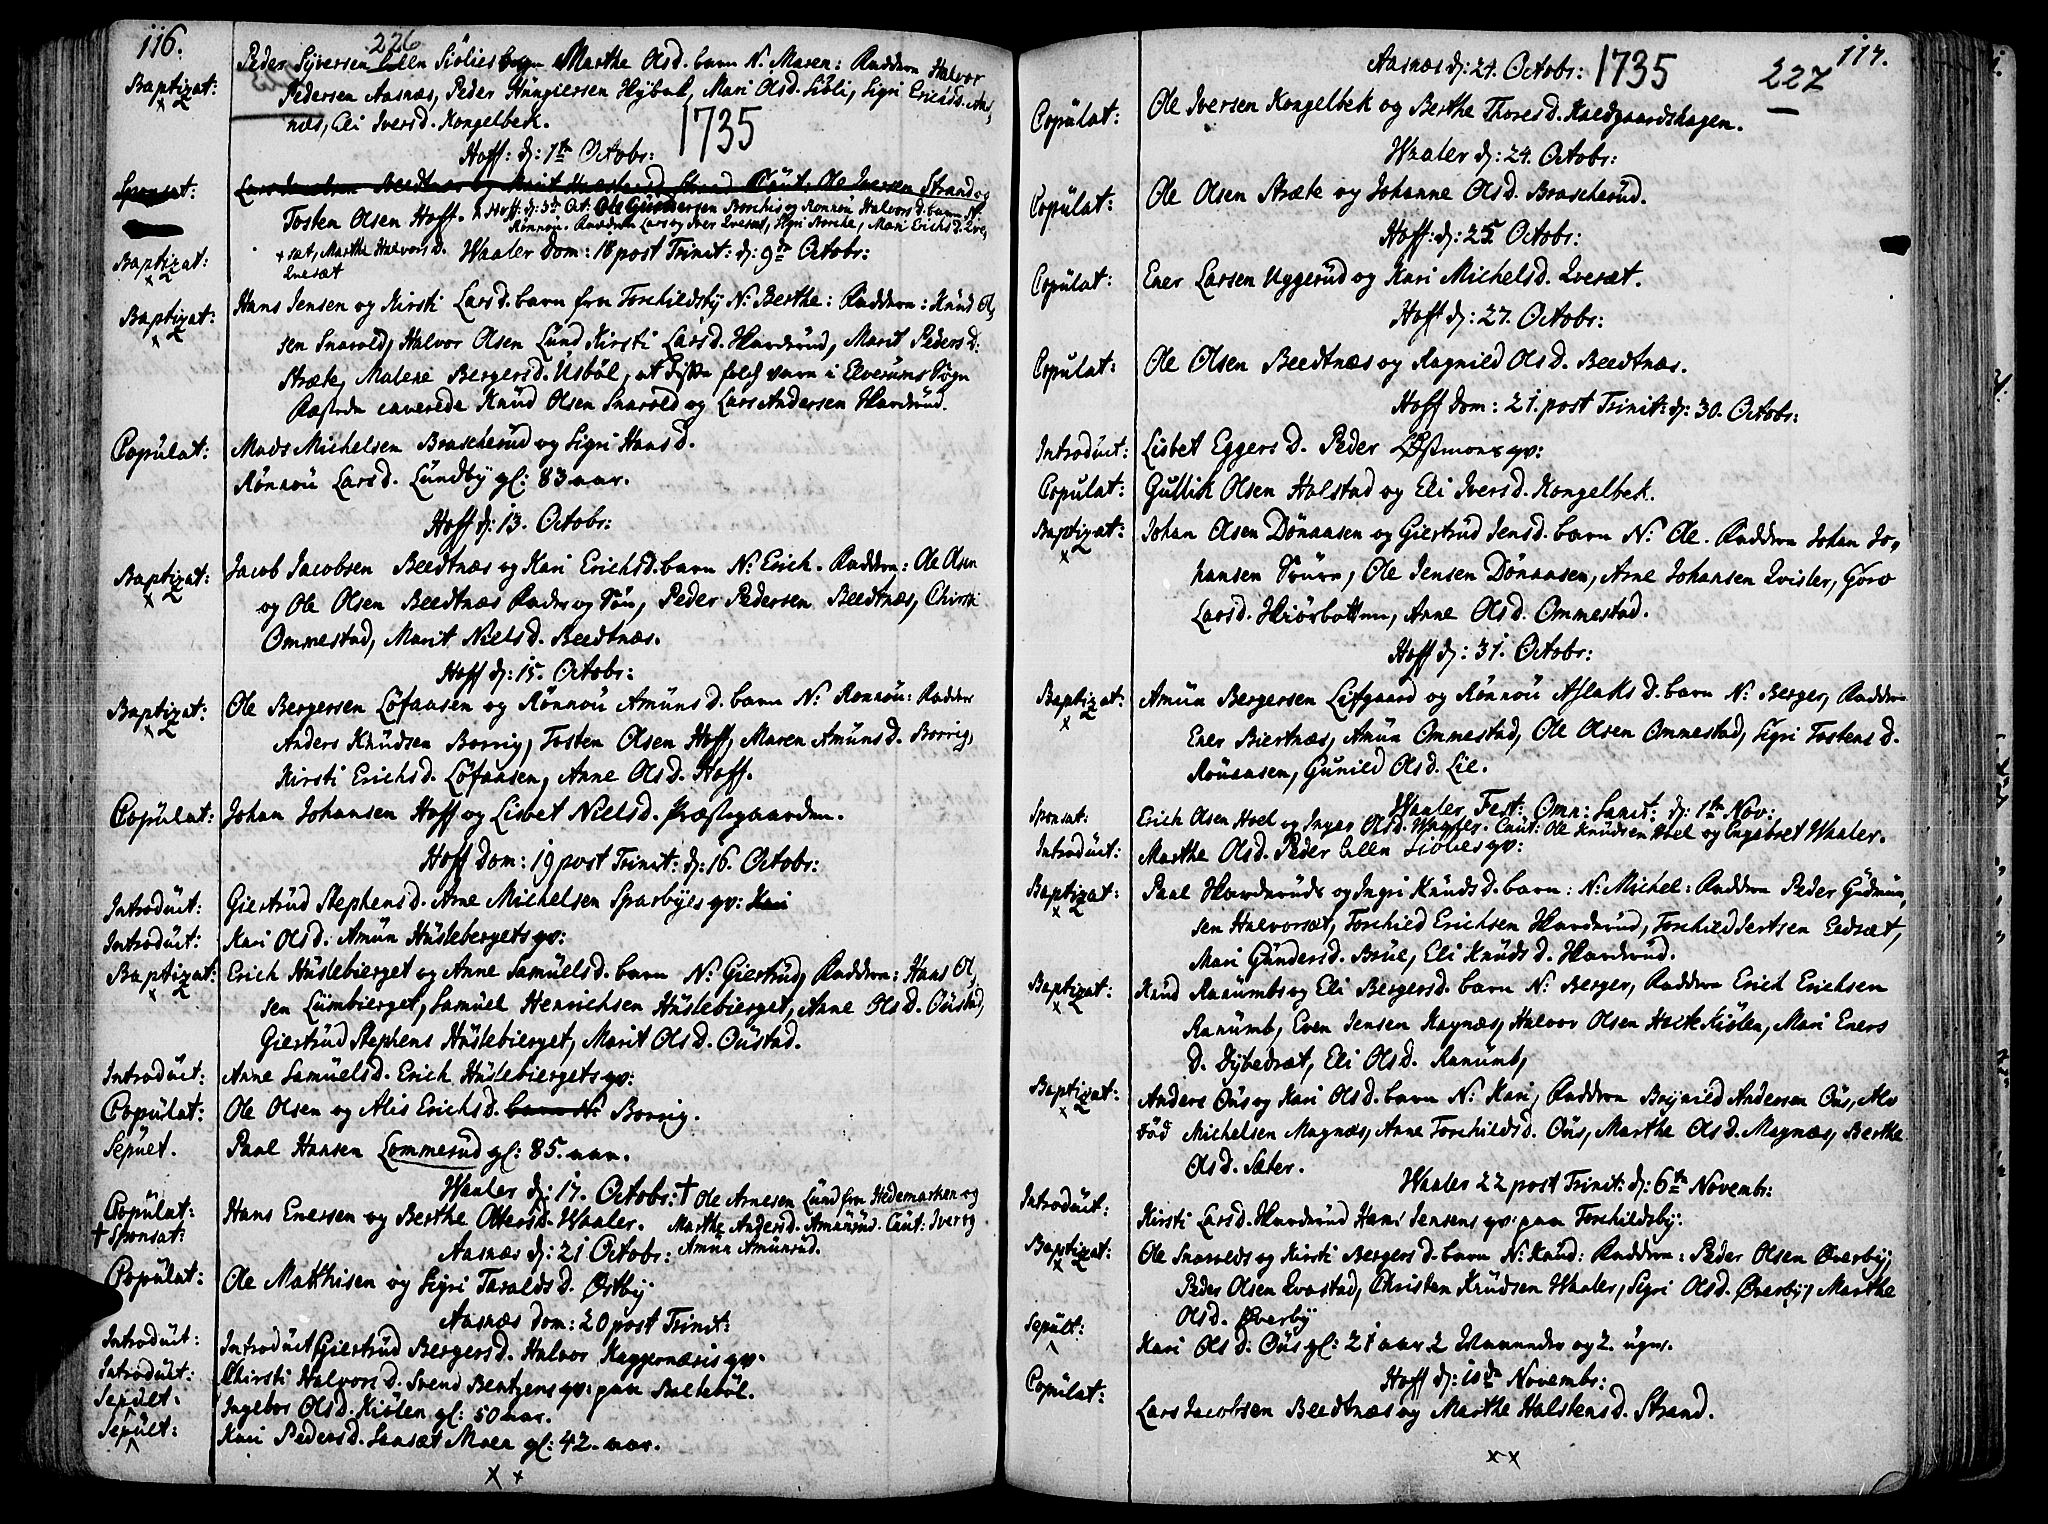 116.
226
Baptizat: Peder Syversen Lilla Siølies Marthe Olsd. barn N. Maren: Faddern Halvor
Pedersen Aasnæs, Peder Hüngiersen Hÿbæk, Mari Olsd. Siöli, Sigri Erichsd. Aas,
næs, Eli Ivers d. Kongelbek.
1735
Hoff: d: 1te Octobr:
Sponsat: Lars Jacobsen Beedtnæs og Marit Halstensd. Strand Caut: Ole Iversen Strand og
Tosten Olsen Hoff.
Baptizat: Hoff: d: 3de Oct: Ole Gundersen Borchis og Rønnou Halvorsd. barn N.
Rønnou. Faddern Lars og Iver Qvesæt, Sigri Borche, Mari Erichsd. Qve,
sæt, Marthe Halvorsd. Qvesæt
Waaler Dom: 18 post Trinit: d: 9de Octobr:
Baptizat: Hans Jensen og Kirsti Larsd. barn fra Torchildsby N: Berthe: Faddern: Knud Ol,
sen Snarold, Halvor Olsen Lund Kirsti Larsd. Harderud, Marit Pedersd:
Stræte, Malene Bergersd. Usböl, at disse folch vare i Elverums Sogn
Ræstede caverede Knud Olsen Snarold og Lars Andersen Harderud.
Copulat: Mads Michelsen Brascherud og Sigri Hansd.
Rönnou Larsd. Lundby gl: 83 aar.
Hoff d: 13. Octobr:
Baptizat: Jacob Jacobsen Beedtnæs og Kari Erichsd. barn N: Erich. Faddern: Ole Olsen
og Ole Olsen Beedtnæs Fader og Sön, Peder Pedersen Beedtnæs, Chirsti
Ommestad, Marit Nielsd. Beedtnæs.
Hoff d: 15. Octobr:
Baptizat: Ole Bergersen Löfaasen og Rönnou Amunsd. barn N: Ronnou: Faddere
Anders Knudsen Borrig, Tosten Olsen Hoff, Maren Amunsd. Borrig,
Kirsti Erichsd. Löfaasen, Anne Olsd. Hoff.
Copulat: Johan Johansen Hoff og Lisbet Nielsd. Præstegaarden.
Hoff Dom: 19 post Trinit: d: 16. Octobr:
Introduit: Giertrud Stephensd. Arne Michelsen Sparbyes qv: Kari
Introduit: Kari Olsd. Amun Huslebergets qv:
Baptizat: Erich Huslebierget og Anne Samuelsd. barn N: Giertrud, Faddern: Hans Ol,
sen Lumbierget, Samuel Henrichsen Huslebierget, Anne Olsd. Oustad,
Giertrud Stephens Huslebierget, Marit Olsd. Oustad.
Introduit: Anne Samuelsd. Erich Huslebiergets qv:
Copulat: Ole Olsen og Alis Erichsd. barn N: Borrig.
Sepult. Paal Hansen Lommerud gl: 85. aar.
Waaler d: 17. Octobr:
Copulat: Hans Enersen og Berthe Ottersd. Waaler.
† Sponsat: † Ole Arnesen Lund fra Hedemarken og
Marthe Andersd. Amunrud. Caut: Iver og
Amun Amunrud.
Aasnæs d: 21 Octobr:
Copulat: Ole Matthisen og Sigri Taraldsd. Östby
Aasnæs Dom: 20 post Trinit:
Introduit: Introduit Giertrud Bergersd. Halvor Kaggernæsis qv.
Introduit: Chirsti Halvorsd. Svend Bentzens qv: paa Balteböl.
Sepult. Ingebor Olsd. Kiölen gl: 50 aar.
Sepult: Kari Pedersd. Sansæt Moen gl: 42. aar.
x +
117.
227
Aasnæs d: 24. Octobr: 1735
Copulat: Ole Iversen Kongelbek og Berthe Thoresd. Kaedgaardshagen.
Waaler d: 24. Octobr:
Copulat: Ole Olsen Stræte og Johanne Olsd. Brascherud.
Hoff: d: 25. Octobr:
Copulat: Ener Larsen Uggerud og Kari Michelsd. Qvesæt.
Hoff d: 27. Octobr:
Copulat: Ole Olsen Beedtnæs og Ragnild Olsd. Beedtnæs.
Hoff Dom: 21. post Trinit: d: 30. Octobr:
Introduit: Lisbet Eggersd. Peder Østmons qv:
Copulat: Gullik Olsen Halstad og Eli Iversd. Kongelbek.
Baptizat: Johan Olsen Dönaasen og Giertrud Jensd. barn N: Ole. Faddern Johan Jo,
hansen Svürn, Ole Jensen Dönaasen, Arne Johansen Qvisler, Goro
Larsd. Hiörbotten, Anne Olsd. Ommestad.
Hoff d: 31. Octobr:
Baptizat: Amun Bergersen Lifgaard og Rönnou Aslaksd. barn N: Berger, Faddern
Ener Biertnæs, Amun Ommestad, Ole Olsen Ommestad, Sigri Tostensd.
Rönaasen, Gunild Olsd. Lie.
Waaler Fest: Omn: Sanct: d: 1te Nov:
Sponsat: Erich Olsen Hoel og Inger Olsd. Waaler. Caut: Ole Knudsen Hoel og Engebret Waaler.
Introduit: Marthe Olsd. Peder Lillæ Siölies qv:
Baptizat: Paal Harderuds og Ingri Knudsd. barn: N: Michel: Faddern Peder Gudmun,
sen Halvorsæt, Torchild Erichsen Harderud, Torchild Sertsen Eidsæt,
Mari Gundersd. Brüe, Eli Knudsd. Harderud.
Baptizat: Knud Ranumbs og Eli Bergersd. barn N: Berger, Faddern Erich Erichsen
Ranumb, Even Jensen Kagnæs, Halvor Olsen Hock Kiölen, Mari Eners
d. Dybedræt, Eli Olsd. Ranumb,
Baptizat: Anders Ous og Kari Olsd. barn N: Kari, Faddern Brynild Andersen Ous, Alv
föd Michelsen Magnæs, Anne Torchildsd. Ous, Marthe Olsd. Magnæs, Berthe
Olsd. Sæter.
Waaler 22 post Trinit: d: 6te Novembr:
Introduit: Kirsti Larsd. Harderud Hans Jensens qv: paa Torchildsby:
Baptizat: Ole Snarolds og Kirsti Bergersd. barn N: Knud: Faddern: Peder Olsen Øverby,
Peder Olsen Evastad, Christen Knudsen Waaler, Sigri Olsd. Øverby, Marthe
Olsd. Øverby
Sepult: Kari Olsd. Ous gl: 21 aar 2 Maaneder og 2. uger.
Hoff d: 10de Novembr:
Copulat: Lars Jacobsen Beedtnæs og Marthe Halstensd. Strand.
x x